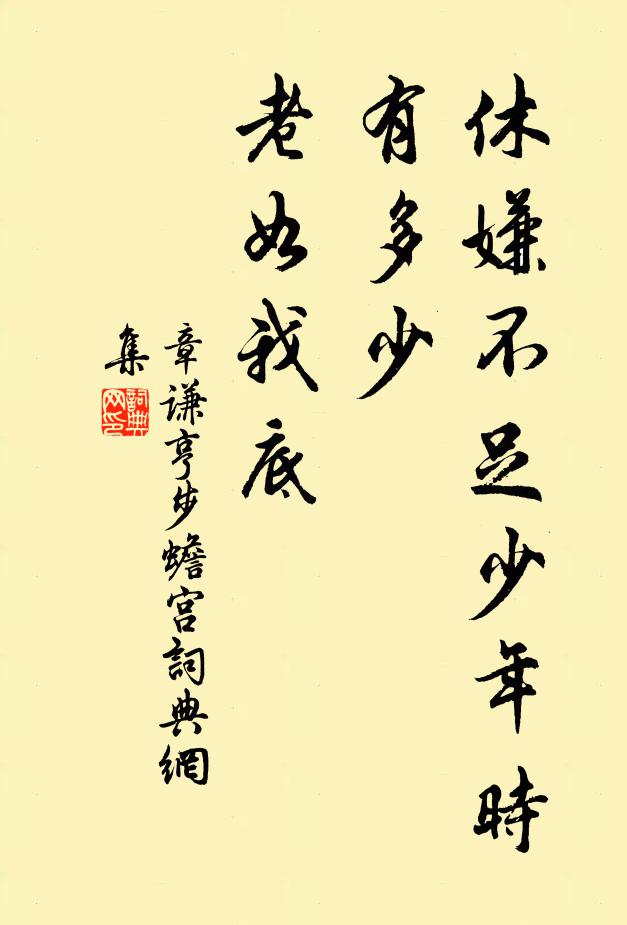 休嫌不足少年時
有多少
老如我底
章謙亨步蟾宮詞典網
集
詞典
网印